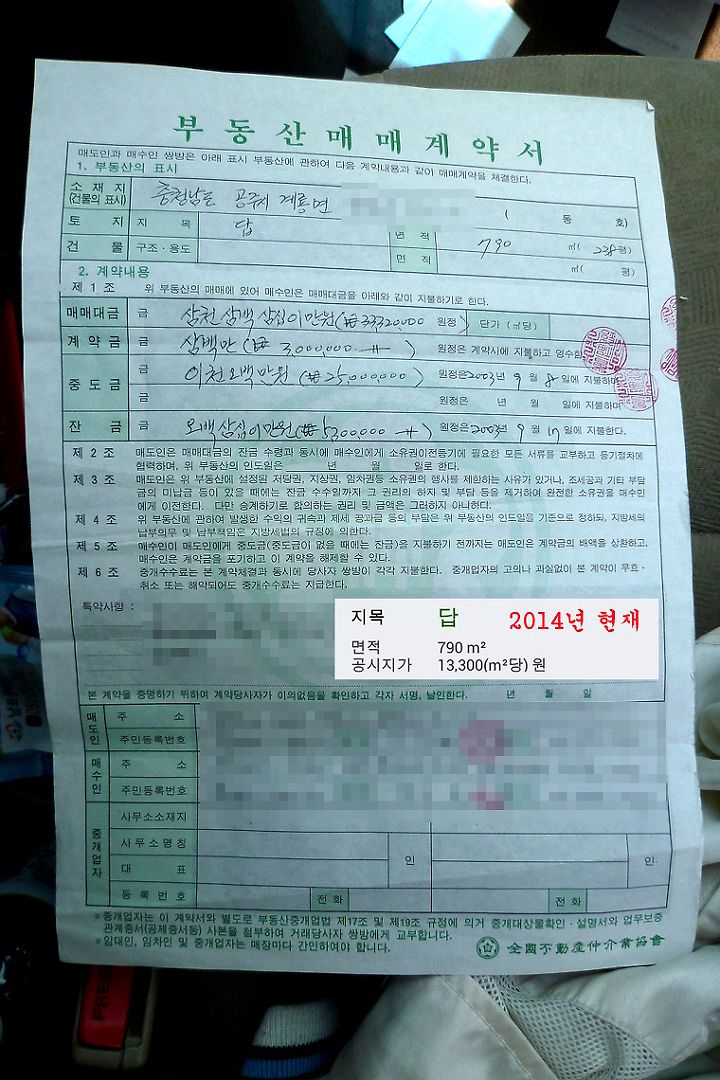 부동산매매계약서
매도인과 매수인 쌍방은 아래 표시 부동산에 관하여 다음 계약내용과 같이 매매계약을 체결한다.
1. 부동산의 표시
소재지 (건물의 표시) 충청남도 공주시 계룡면 ( 동 호)
토지 지목 답 면적 790 ㎡( 238평)
건물 구조·용도 면적 ㎡( 평)
2. 계약내용
제 1 조 위 부동산의 매매에 있어 매수인은 매매대금을 아래와 같이 지불하기로 한다.
매매대금 금 삼천삼백삼십이만원(₩33320000 원정) 단가 (㎡당)
계약금 금 삼백만 (₩ 3,000,000 ) 원정은 계약시에 지불하고 영수함
중도금 금 이천오백만원 (₩25,000000 ) 원정은2003년 9월 8일에 지불하며
금 원정은 년 월 일에 지불하며
잔금 금 오백삼십이만원(₩5,300000 ) 원정은2003년 9월 일에 지불한다.
제 2 조 매도인은 매매대금의 잔금 수령과 동시에 매수인에게 소유권이전등기에 필요한 모든 서류를 교부하고 등기절차에
협력하며, 위 부동산의 인도일은 년 월 일로 한다.
제 3 조 매도인은 위 부동산에 설정된 저당권, 지상권, 임차권등 소유권의 행사를 제한하는 사유가 있거나, 조세공과 기타 부담
금의 미납금 등이 있을 때에는 잔금 수수일까지 그 권리의 하자 및 부담 등을 제거하여 완전한 소유권을 매수인
에게 이전한다. 다만 승계하기로 합의하는 권리 및 금액은 그러하지 아니하다.
제 4 조 위 부동산에 관하여 발생한 수익의 귀속과 제세 공과금 등의 부담은 위 부동산의 인도일을 기준으로 정하되, 지방세의
납부의무 및 납부책임은 지방세법의 규정에 의한다.
제 5 조 매수인이 매도인에게 중도금(중도금이 없을 때에는 잔금)을 지불하기 전까지는 매도인은 계약금의 배액을 상환하고,
매수인은 계약금을 포기하고 이 계약을 해제할 수 있다.
제 6 조 중개수수료는 본 계약체결과 동시에 당사자 쌍방이 각각 지불한다. 중개업자의 고의나 과실없이 본 계약이 무효·
취소 또는 해약되어도 중개수수료는 지급한다.
특약사항 :
지목 답 2014년 현재
면적 790 m²
공시지가 13,300(m²당) 원
본 계약을 증명하기 위하여 계약당사자가 이의없음을 확인하고 각자 서명, 날인한다. 년 월 일
매도인 주소
주민등록번호
매수인 주소
주민등록번호
중개업자 사무소소재지
사무소명칭 인 인
대표
등록번호 전화 전화
*중개업자는 이 계약서와 별도로 부동산중개업법 제17조 및 제19조 규정에 의거 중개대상물확인·설명서와 업무보증
관계증서(공제증서등) 사본을 첨부하여 거래당사자 쌍방에게 교부합니다.
*임대인, 임차인 및 중개업자는 매장마다 간인하여야 합니다.
全國不動産仲介業協會